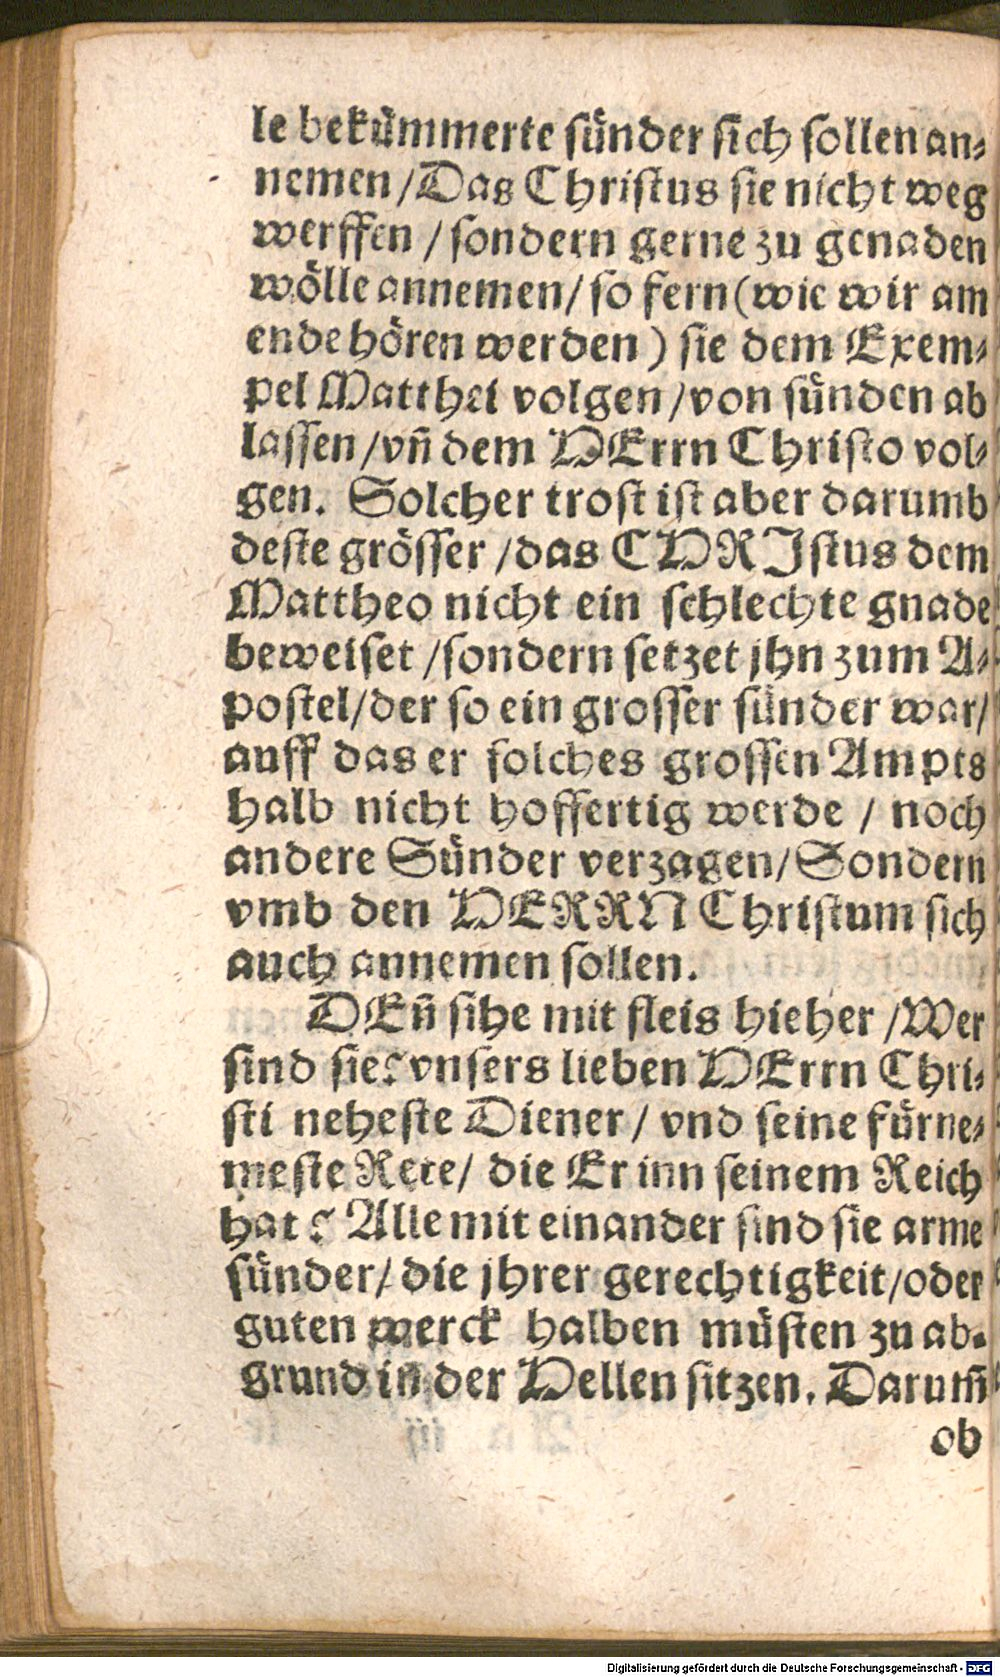 le bekümmerte sünder sich sollen an⸗
nemen / Das Christus sie nicht weg
werffen / sondern gerne zu genaden
wölle annemen / so fern (wie wir am
ende hören werden) sie dem Exem⸗
pel Matthei volgen / von sünden ab
lassen / vñ dem HErrn Christo vol⸗
gen. Solcher trost ist aber darumb
deste grösser / das CHRIstus dem
Mattheo nicht ein schlechte gnade
beweiset / sondern setzet jhn zum A⸗
postel / der so ein grosser sünder war /
auff das er solches grossen Ampts
halb nicht hoffertig werde / noch
andere Sünder verzagen / Sondern
vmb den HERRN Christum sich
auch annemen sollen.
DEñ sihe mit fleis hieher / Wer
sind sie? vnsers lieben HErrn Chri⸗
sti neheste Diener / vnd seine fürne⸗
meste Rete / die Er inn seinem Reich
hat? Alle mit einander sind sie arme
sünder / die jhrer gerechtigkeit / oder
guten werck halben müsten zu ab⸗
grund in der Hellen sitzen. Darum̃
ob
Digitalisierung gefördert durch die Deutsche Forschungsgemeinschaft - DFG